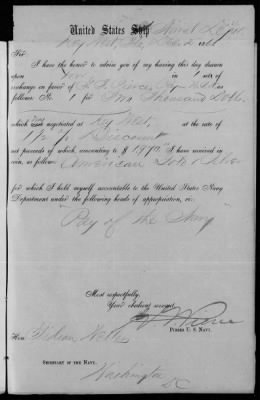 United States Ship Naval Depot
Key West Fla. Dec. 2 186
Sir:
I have the honor to advise you of my having this day drawn
upon you in 1 set of
exchange in favor of
follows: No. 1 for Two Thousand Dolls.
which was negotiated at Key West, at the rate of
1 1/2 p. Discount
net proceeds of which, amounting to $ 1970 I have received
in coin, as follows: American Gold & Silver
for which I hold myself accountable to the United States Navy
Department under the following heads of appropriation, viz:
"Pay of the Navy"
Most respectfully,
Your obedient servant,
PURSER U. S. NAVY.
Hon. Gideon Welles
SECRETARY OF THE NAVY.
Washington
DC